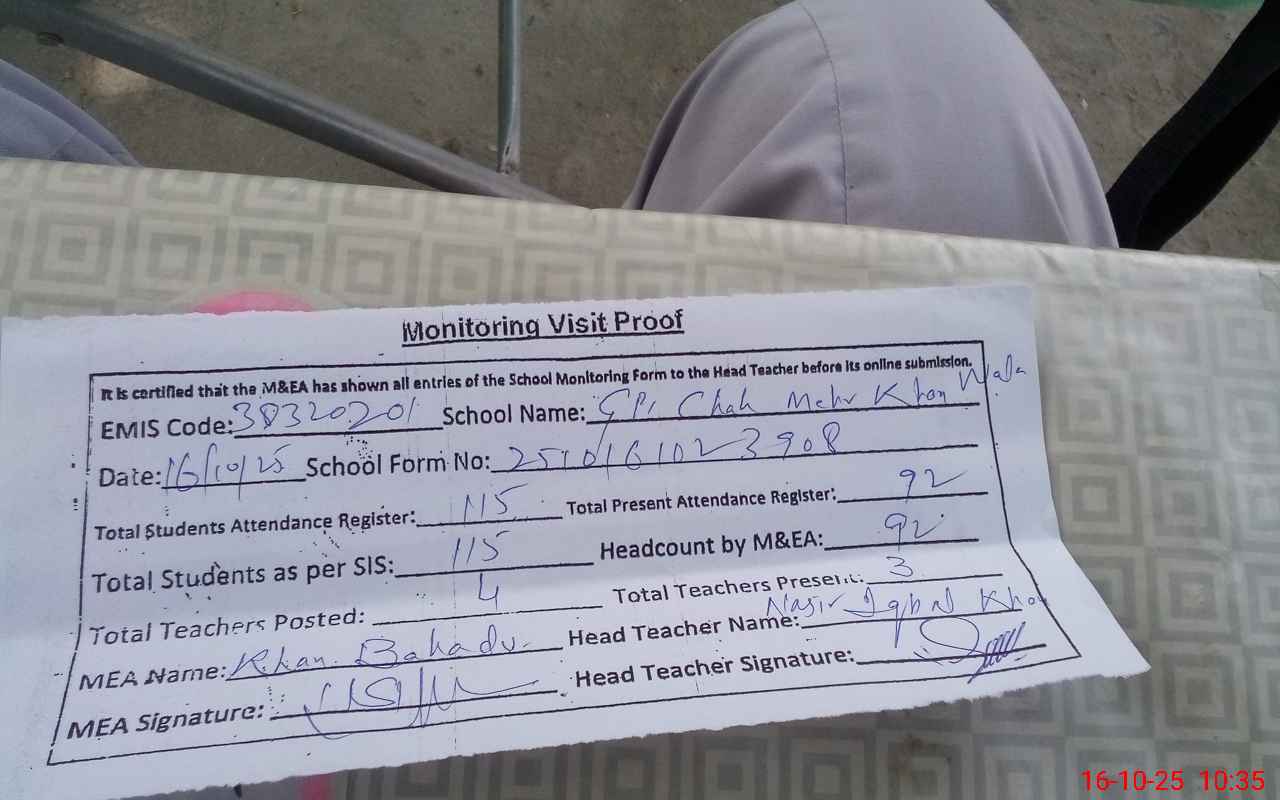 Monitoring Visit Proof
It is certified that the M&EA has shown all entries of the School Monitoring Form to the Head Teacher before its online submission.
EMIS Code: 38320201 School Name: GPS Chah Mehr Khan Wala
Date: 16/10/25 School Form No: 2510161023908
Total Students Attendance Register: 115 Total Present Attendance Register: 92
Total Students as per SIS: 115 Headcount by M&EA: 92
Total Teachers Posted: 4 Total Teachers Present: 3
MEA Name: Khan Bahadur Head Teacher Name: Nasir Iqbal Khan
MEA Signature: Head Teacher Signature:
16-10-25 10:35